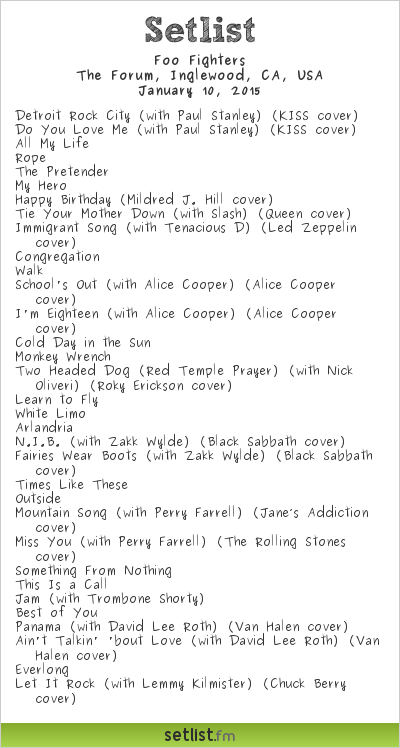 Setlist
Foo Fighters
The Forum, Inglewood, CA, USA
January 10, 2015
Detroit Rock City (with Paul Stanley) (KISS cover)
Do You Love Me (with Paul Stanley) (KISS cover)
All My Life
Rope
The Pretender
My Hero
Happy Birthday (Mildred J. Hill cover)
Tie Your Mother Down (with Slash) (Queen cover)
Immigrant Song (with Tenacious D) (Led Zeppelin
cover)
Congregation
Walk
School's Out (with Alice Cooper) (Alice Cooper
cover)
I'm Eighteen (with Alice Cooper) (Alice Cooper
cover)
Cold Day in the Sun
Monkey Wrench
Two Headed Dog (Red Temple Prayer) (with Nick
Oliveri) (Roky Erickson cover)
Learn to Fly
White Limo
Arlandria
N.I.B. (with Zakk Wylde) (Black Sabbath cover)
Fairies Wear Boots (with Zakk Wylde) (Black Sabbath
cover)
Times Like These
Outside
Mountain Song (with Perry Farrell) (Jane's Addiction
cover)
Miss You (with Perry Farrell) (The Rolling Stones
cover)
Something From Nothing
This Is a Call
Jam (with Trombone Shorty)
Best of You
Panama (with David Lee Roth) (Van Halen cover)
Ain't Talkin' 'bout Love (with David Lee Roth) (Van
Halen cover)
Everlong
Let It Rock (with Lemmy Kilmister) (Chuck Berry
cover)
setlist.fm